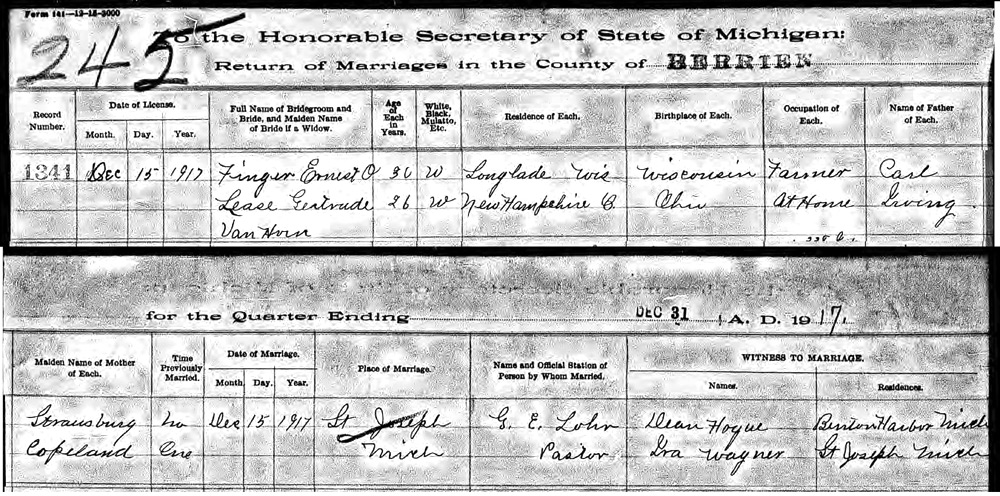 Form 141—12-15-3000
245
To the Honorable Secretary of State of Michigan:
Return of Marriages in the County of BERRIEN
Record Number. Date of License. Month. Day. Year. Full Name of Bridegroom and Bride, and Maiden Name of Bride if a Widow. Age of Each in Years. White, Black, Mulatto, Etc. Residence of Each. Birthplace of Each. Occupation of Each. Name of Father of Each.
1341 Dec 15 1917 Finger Ernest O 30 W Longlade Wis Wisconsin Farmer Carl
Lease Gertrude 26 W New Hampshire O. Ohio At Home Irving
Van Horn
for the Quarter Ending DEC 31 A. D. 1917.
Maiden Name of Mother of Each. Time Previously Married. Date of Marriage. Month. Day. Year. Place of Marriage. Name and Official Station of Person by Whom Married. WITNESS TO MARRIAGE. Names. Residences.
Strausburg no Dec 15 1917 St Joseph G. E. Lohr Dean Hogue Benton Harbor Mich
Copeland One Mich Pastor Ira Wagner St Joseph Mich